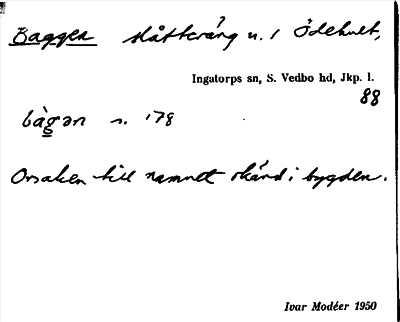 Baggen slåtteräng u. / Ödehult,
Ingatorps sn, S. Vedbo hd, Jkp. l.
88
bàgən n. 178
Orsaken till namnet okänd i bygden.
Ivar Modéer 1950